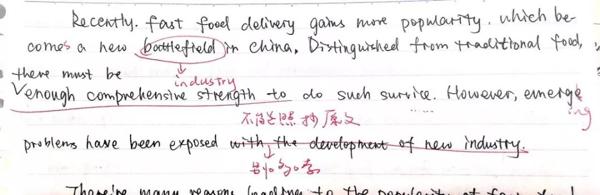 Recently. fast food delivery gains more popularity. which be-
comes a new battlefield in China. Distinguished from traditional food,
there must be
industry
enough comprehensive strength to do such survice. However, emergeing
不能照抄原文
problems have been exposed with the development of new industry.
There're many reasons leading to the popularity of